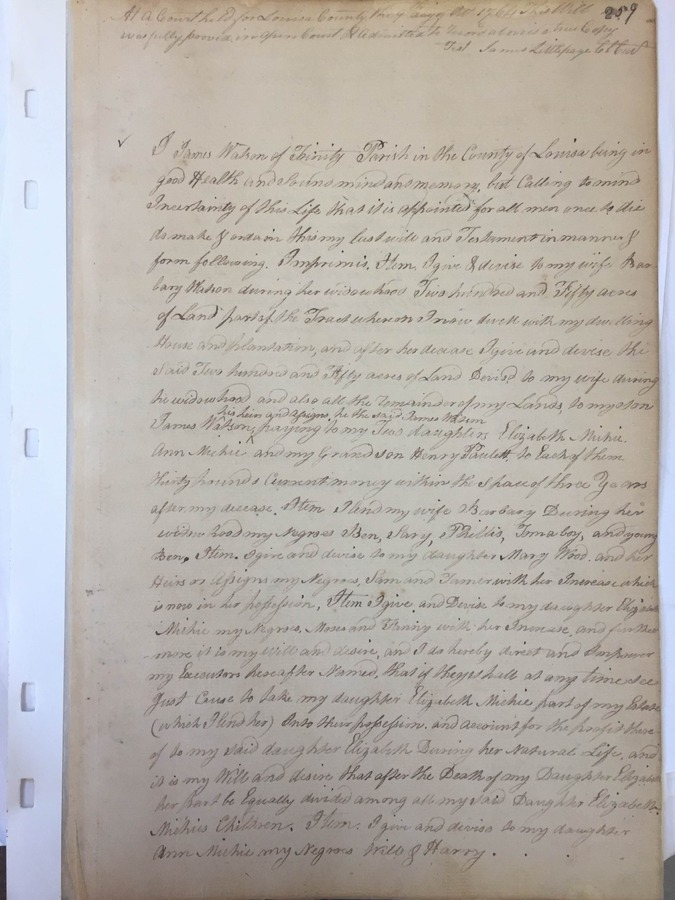 259
At A Court held for Louisa County 1764 This Will
was fully proved in open Court & admitted to record above is a true Copy
Test James Littlepage Cl Cur
I James Watson of Trinity Parish in the County of Louisa being in
good Health and Sound mind and memory, but Calling to mind
Incertainty of this Life that it is appointed for all men once to die
do make & ordain this my last will and Testament in manner &
form following. Imprimis, Item. I give & devise to my wife Bar
bary Watson during her widowhood Two hundred and Fifty acres
of Land part of the Tract whereon I now dwell with my dwelling
House and plantation, and after her decease I give and devise the
Said Two hundred and Fifty acres of Land Devised to my wife during
he widowhood and also all the remainder of my Lands, to my son
his heirs and assigns, he the said James Watson
James Watson, paying to my Two daughters Elizabeth Michie
Ann Michie, and my Grandson Henry Pawlett to Each of them
thirty pounds Current money within the Space of three Years
after my decease. Item I lend my wife Barbary During her
widow hood my Negroes Ben, Sary, Phillis, Tom a boy, and young
Ben. Item. I give and devise to my daughter Mary Wood. and her
Heirs or Assigns my Negroes, Sam and Tamer with her Increase which
is now in her possession, Item I give and Devise to my daughter Elizabeth
Michie my Negroes, Moses and Fanny with her Increase, and further
more it is my will and desire, and I do hereby direct and Impower
my Executors hereafter Named, that if they shall at any time see
Just Cause to take my daughter Elizabeth Michie part of my Estate
(which I lend her) Into their possession. and account for the profit there
of to my said daughter Elizabeth During her Natural Life, and
it is my Will and desire that after the Death of my Daughter Elizabeth
her part be Equally divided among all my said Daughter Elizabeth
Michies Children. Item. I give and devise to my daughter
Ann Michie my Negroes Will & Harry.